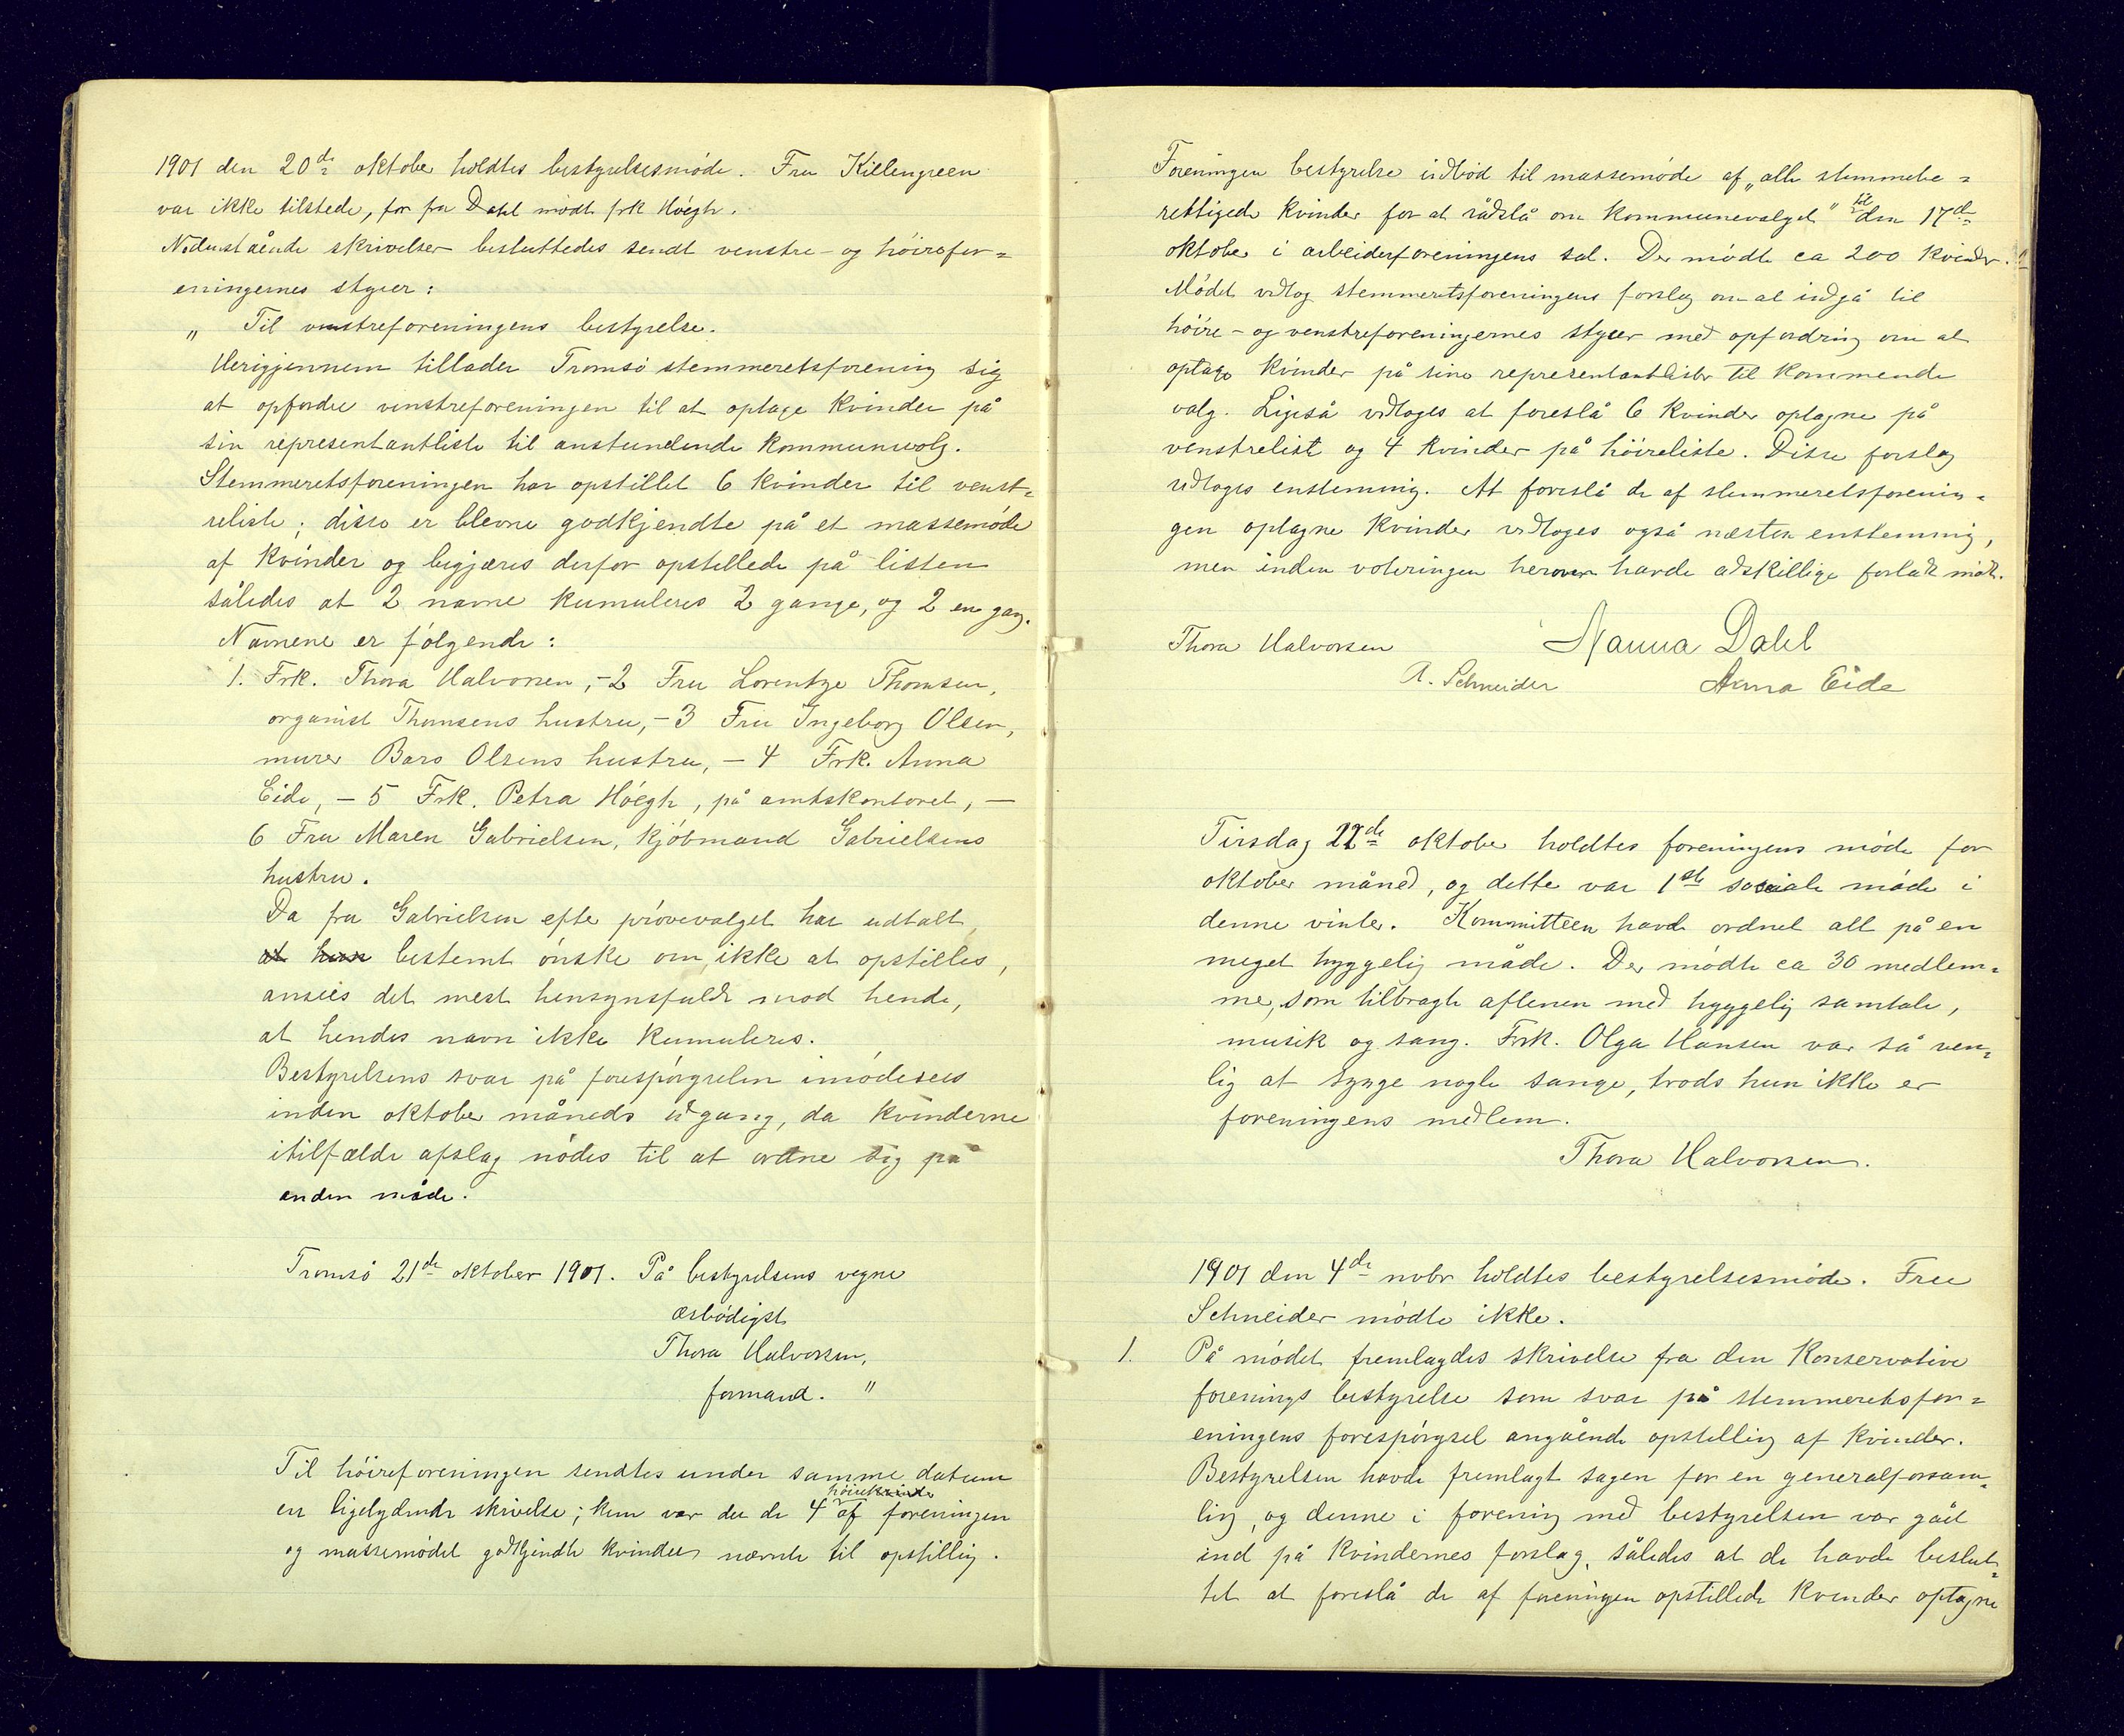 1901 den 20de oktober holdtes bestyrelsesmöde. Fru Killengreen
var ikke tilstede, for fru Dahl mödte frk Höegh.
Nedenstående skrivelser besluttedes sendt venstre- og höirefor=
eningernes styrer:
„ Til venstreforeningens bestyrelse.
Herigjennem tillader Tromsö stemmeretsforening sig
at opfordre venstreforeningen til at optage kvinder på
sin representantliste til anstundende kommunevalg.
Stemmeretsforeningen har opstillet 6 kvinder til venst=
reliste; disse er blevne godkjendte på et massemöde
af kvinder og begjæres derfor opstillede på listen
således at 2 navne kumuleres 2 gange, og 2 en gang.
Navnene er fölgende:
1. Frk. Thora Halvorsen, -2 Fru Lorentze Thomsen,
organist Thomsens hustru, -3 Fru Ingeborg Olsen,
murer Baro Olsens hustru, - 4 Frk. Anna
Eide, - 5 Frk. Petra Höegh, på amtskontoret, —
6 Fru Maren Gabrielsen, kjöbmand Gabrielsens
hustru.
Da fru Gabrielsen efter prövevalget har udtalt
at hun bestemt önske om, ikke at opstilles,
ansees det mest hensynsfuldt mod hende,
at hendes navn ikke kumuleres.
Bestyrelsens svar på forespörgselen imödesees
inden oktober måneds udgang, da kvinderne
itilfælde afslag nödes til at ordne sig på
anden måde.
Tromsö 21de oktober 1901. På bestyrelsens vegne
ærbödigst
Thora Halvorsen,
formand. "
Til höireforeningen sendtes under samme datum
en ligelydende skrivelse; kun var der de 4 höirekvinder af foreningen
og massemödet godkjendte kvinder nævnte til opstilling.
Foreningen bestyrelse indböd til massemöde af „alle stemmebe=
rettigede kvinder for at rådslå om kommunevalget" til den 17de
oktober i arbeiderforeningens sal. Der mödte ca 200 kvinder.
Mödet vedtog stemmeretsforeningens forslag om at indgå til
höire- og venstreforeningernes styrer med opfordring om at
optage kvinder på sine representantlister til kommende
valg. Ligeså vedtoges at foreslå 6 kvinder optagne på
venstrelist og 4 kvinder på höireliste. Disse forslag
vedtoges enstemmig. At foreslå de af stemmeretsforenin=
gen optagne kvinder vedtoges også næsten enstemmig,
men inden voteringen herover havde adskillige forladt mödt.
Thora Halvorsen Nanna Dahl
A. Schneider Anna Eide
Tirsdag 22de oktober holdtes foreningens möde for
oktober måned, og dette var 1ste sociale möde i
denne vinter. Kommitteen havde ordnet alt på en
meget hyggelig måde. Der mödte ca 30 medlem=
mer, som tilbragte aftenen med hyggelig samtale,
musik og sang. Frk. Olga Hansen var så ven=
lig at synge nogle sange, trods hun ikke er
foreningens medlem.
Thora Halvorsen.
1901 den 4de nobr holdtes bestyrelsesmöde. Fru
Schneider mödte ikke.
1. På mödet fremlagdes skrivelse fra den konservative
forenings bestyrelse som svar på stemmeretsfor=
eningens forespörgsel angående opstilling af kvinder.
Bestyrelsen havde fremlagt sagen for en generalforsam=
ling, og denne i forening med bestyrelsen var gået
ind på kvindernes forslag, således at de havde beslut=
tet at foreslå de af foreningen opstillede kvinder optagne